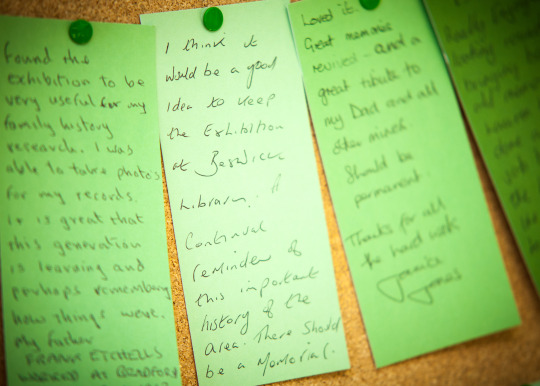 Found the
exhibition to be
very useful for my
family history
research. I was
able to take photos
for my records.
It is great that
this generation
is learning and
perhaps remembering
how things were.
My father
FRANK ETCHELLS
WORKED AT BRADFORD
I think it
would be a good
idea to keep
the Exhibition
at Beswick
Library. A
Continual
reminder of
this important
history of the
area. There should
be a Memorial.
Loved it.
Great memories
revised - and a
great tribute to
my Dad and all
other miners.
Should be
permanent.
Thanks for all
the hard work